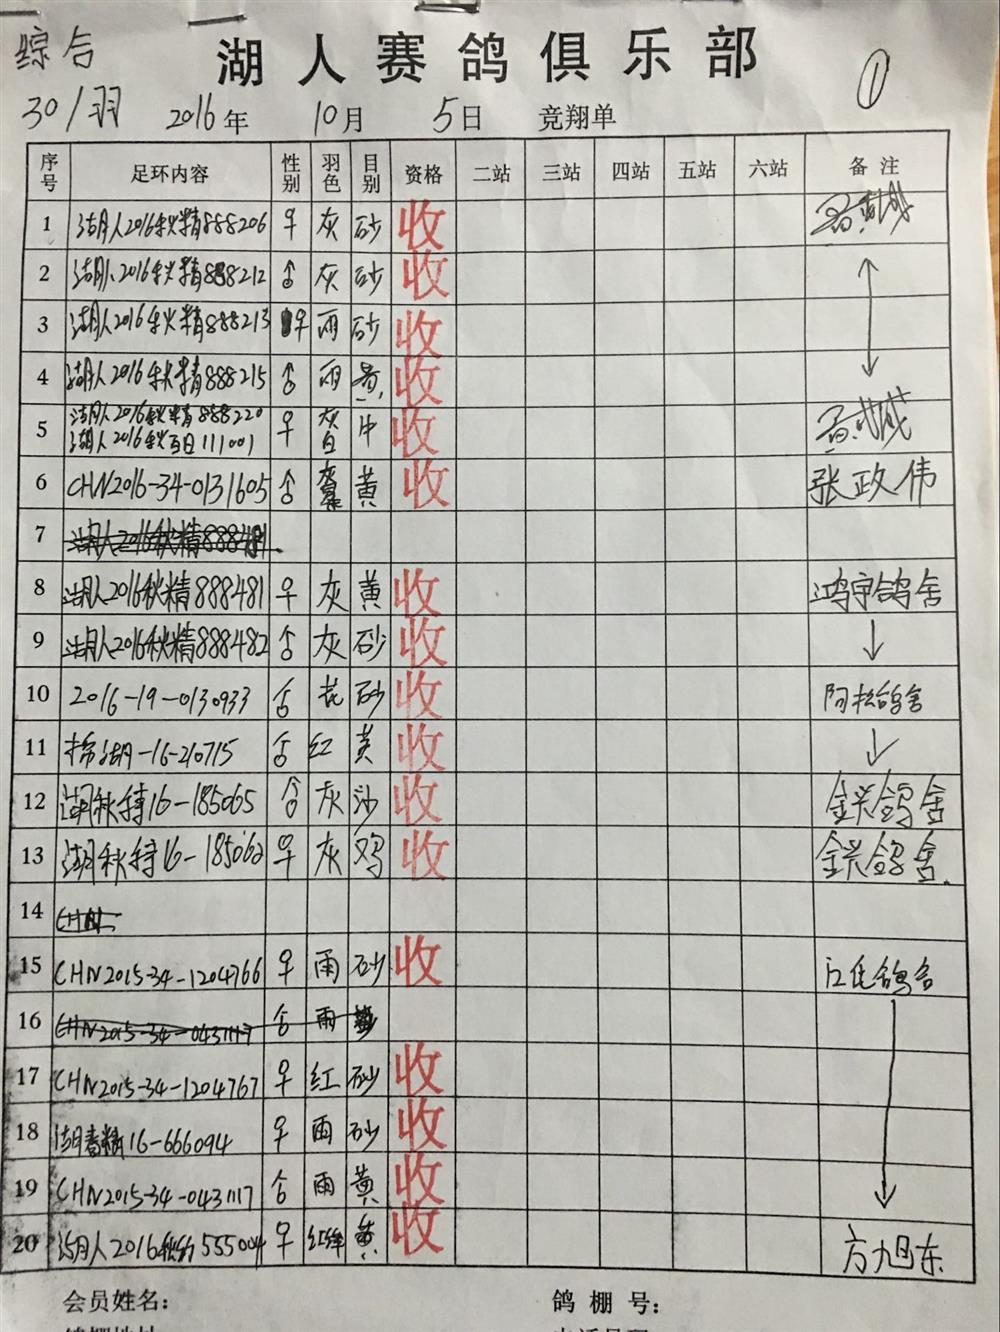 综合
湖人赛鸽俱乐部
①
30/羽 2016年 10月 5日 竞翔单
序号 足环内容 性别 羽色 目别 资格 二站 三站 四站 五站 六站 备注
1 湖人2016秋精888206 ♀ 灰 砂 收
2 湖人2016秋精888212 ♂ 灰 砂 收
3 湖人2016秋精888213 ♀ 雨 砂 收
4 湖人2016秋精888215 ♂ 雨 黄 收
5 湖人2016秋精888220 ♀ 灰白 牛 收
湖人2016秋百日111001
6 CHN2016-34-0131605 ♂ 黄 收 张政伟
7
8 湖人2016秋精888481 ♀ 灰 黄 收 鸿宇鸽舍
9 湖人2016秋精888482 ♂ 灰 砂 收 ↓
10 2016-19-0130933 ♂ 花 砂 收 阿松鸽舍
11 湖-16-210715 ♂ 红 黄 收 ↓
12 湖秋特16-185065 ♂ 灰 沙 收 金兴鸽舍
13 湖秋特16-185062 ♀ 灰 鸡 收 金兴鸽舍
14 CHN
15 CHN2015-34-1204766 ♀ 雨 砂 收 鸽舍
16 CHN2015-34-0431117 ♂ 雨
17 CHN2015-34-1204767 ♀ 红 砂 收
18 湖春精16-666094 ♀ 雨 砂 收
19 CHN2015-34-0431117 ♂ 雨 黄 收
20 湖人2016秋555004 ♀ 红绛 黄 收 方旭东
会员姓名： 鸽棚号：